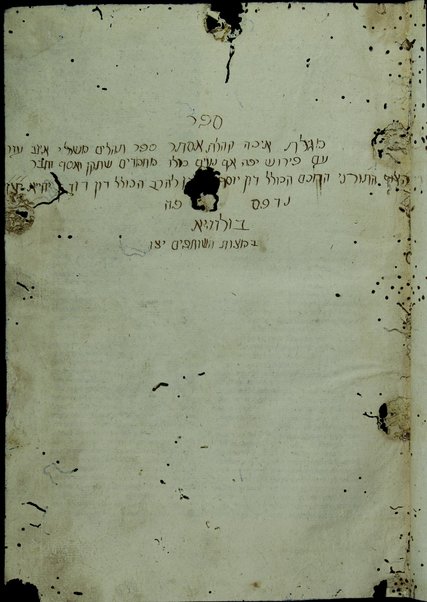 ספר
מגלת איכה קהלת אסתר ספר תהלים משלי איוב עזר
עם פירוש יפה אף נעים כולו מחמדים שתקן ואסף וחבר
התורני החכם הכולל דון יוסף להרב הכולל דון דוד יחייא
נדפס פה
בולוניא
במצות השותפים יצו